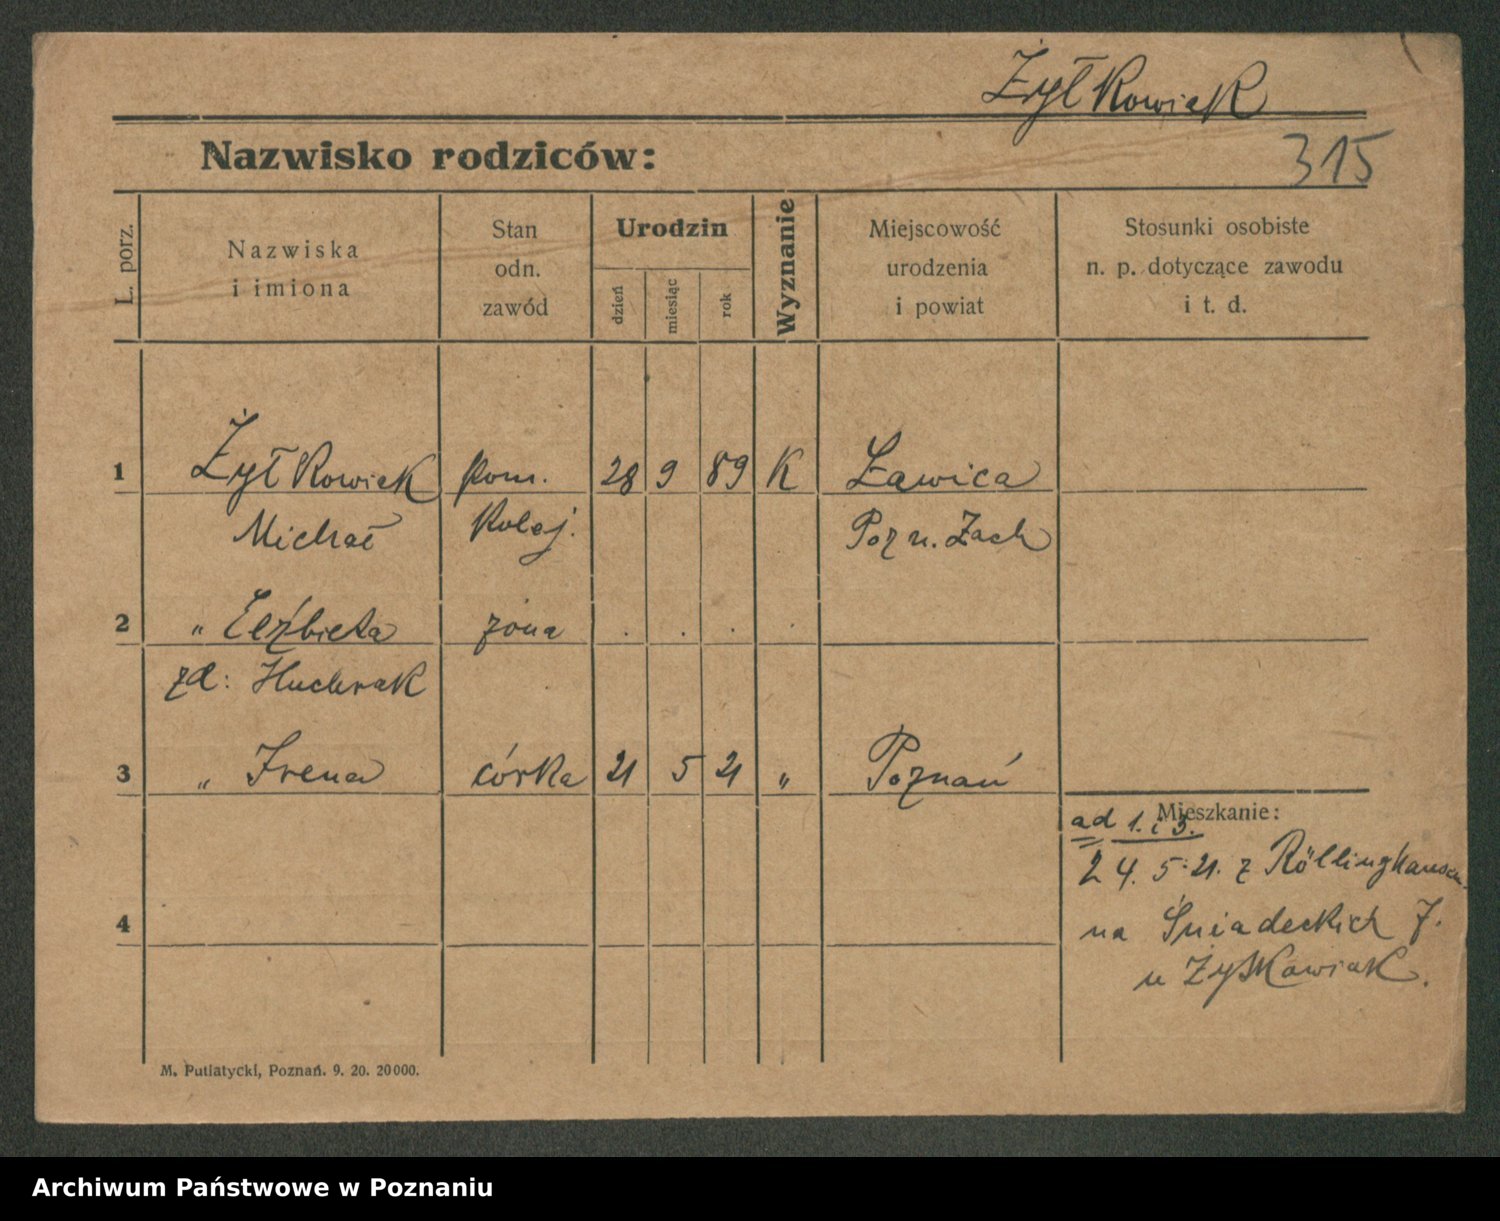 Żyłkowiak
315
Nazwisko rodziców:
L. porz.
Nazwiska
i imiona
Stan
odn.
zawód
Urodzin
dzień
miesiąc
rok
Wyznanie
Miejscowość
urodzenia
i powiat
Stosunki osobiste
n. p. dotyczące zawodu
i t. d.
1 Żyłkowiak pom. 28 9 89 K Ławica
Michał kolej. Pozn. Zach
2 „ Elżbieta żona . . . .
zd:
3 „ Irena córka 21 5 21 „ Poznań
Mieszkanie:
ad 1. i 3.
24. 5. 21. z Röllinghausen
na Śniadeckich 7.
u Żyłkowiak.
4
M. Putiatycki, Poznań. 9. 20. 20000.
Archiwum Państwowe w Poznaniu